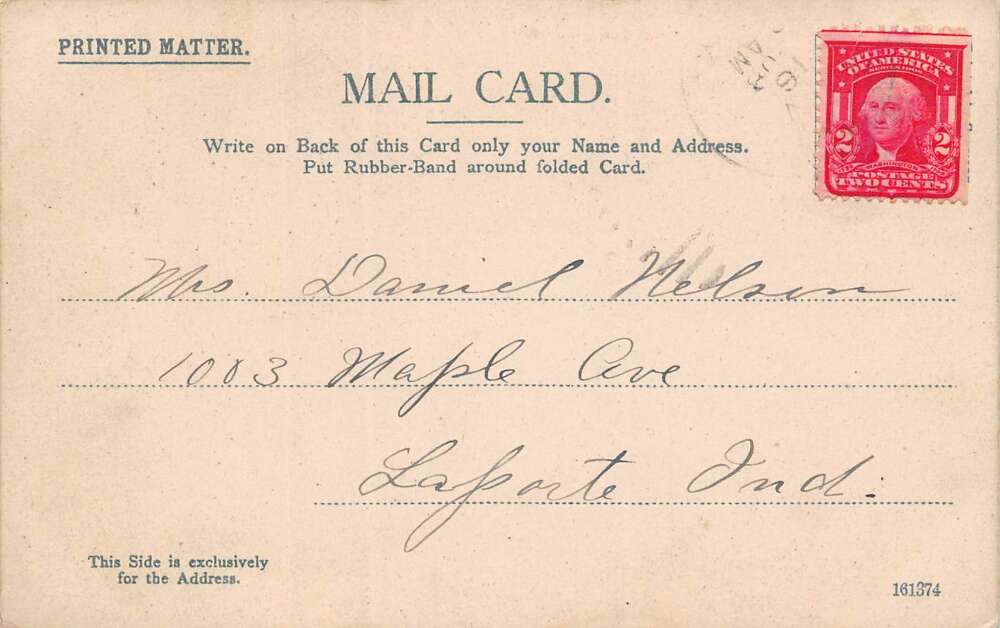 PRINTED MATTER.
MAIL CARD.
Write on Back of this Card only your Name and Address.
Put Rubber-Band around folded Card.
UNITED STATES
OF AMERICA
SERIES 1902
2 2
WASHINGTON
POSTAGE
TWO CENTS
Mrs. Daniel Nelson
1003 Maple Ave
LaPorte Ind.
This Side is exclusively
for the Address.
161374